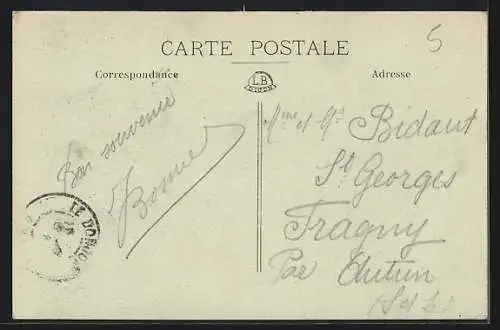 CARTE POSTALE
5
Correspondance
LB
Adresse
Bon souvenir
Bonnet
Mme et Mr Bidaut
St Georges
Fragny
Par Autun
(S et L)
LE BORNO